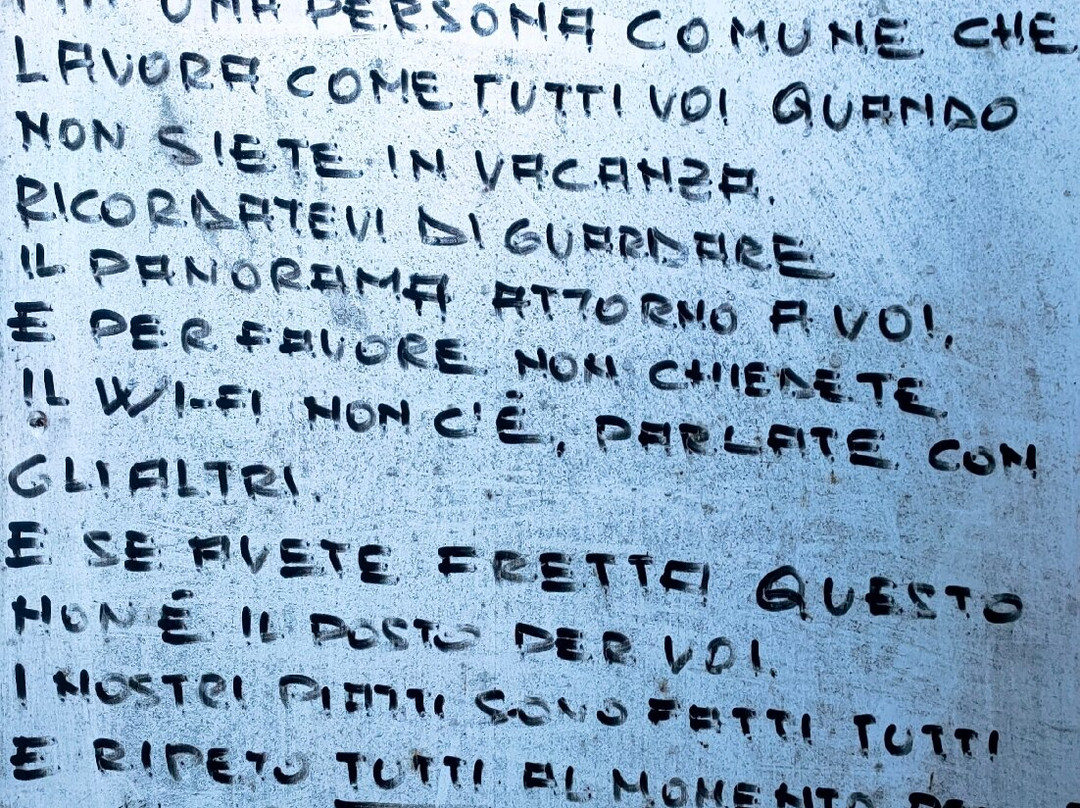 UNA PERSONA COMUNE CHE
LAVORA COME TUTTI VOI QUANDO
NON SIETE IN VACANZA.
RICORDATEVI DI GUARDARE
IL PANORAMA ATTORNO A VOI,
E PER FAVORE NON CHIEDETE
IL WI-FI NON C'É, PARLATE CON
GLI ALTRI.
E SE AVETE FRETTA QUESTO
NON É IL POSTO PER VOI.
I NOSTRI PIATTI SONO FATTI TUTTI
E RIPETO TUTTI AL MOMENTO